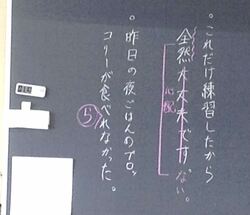 。これだけ練習したから
全然大丈夫です。
心配ない
。昨日の夜ごはんのブロッ
コリーが食べれなかった。
ら